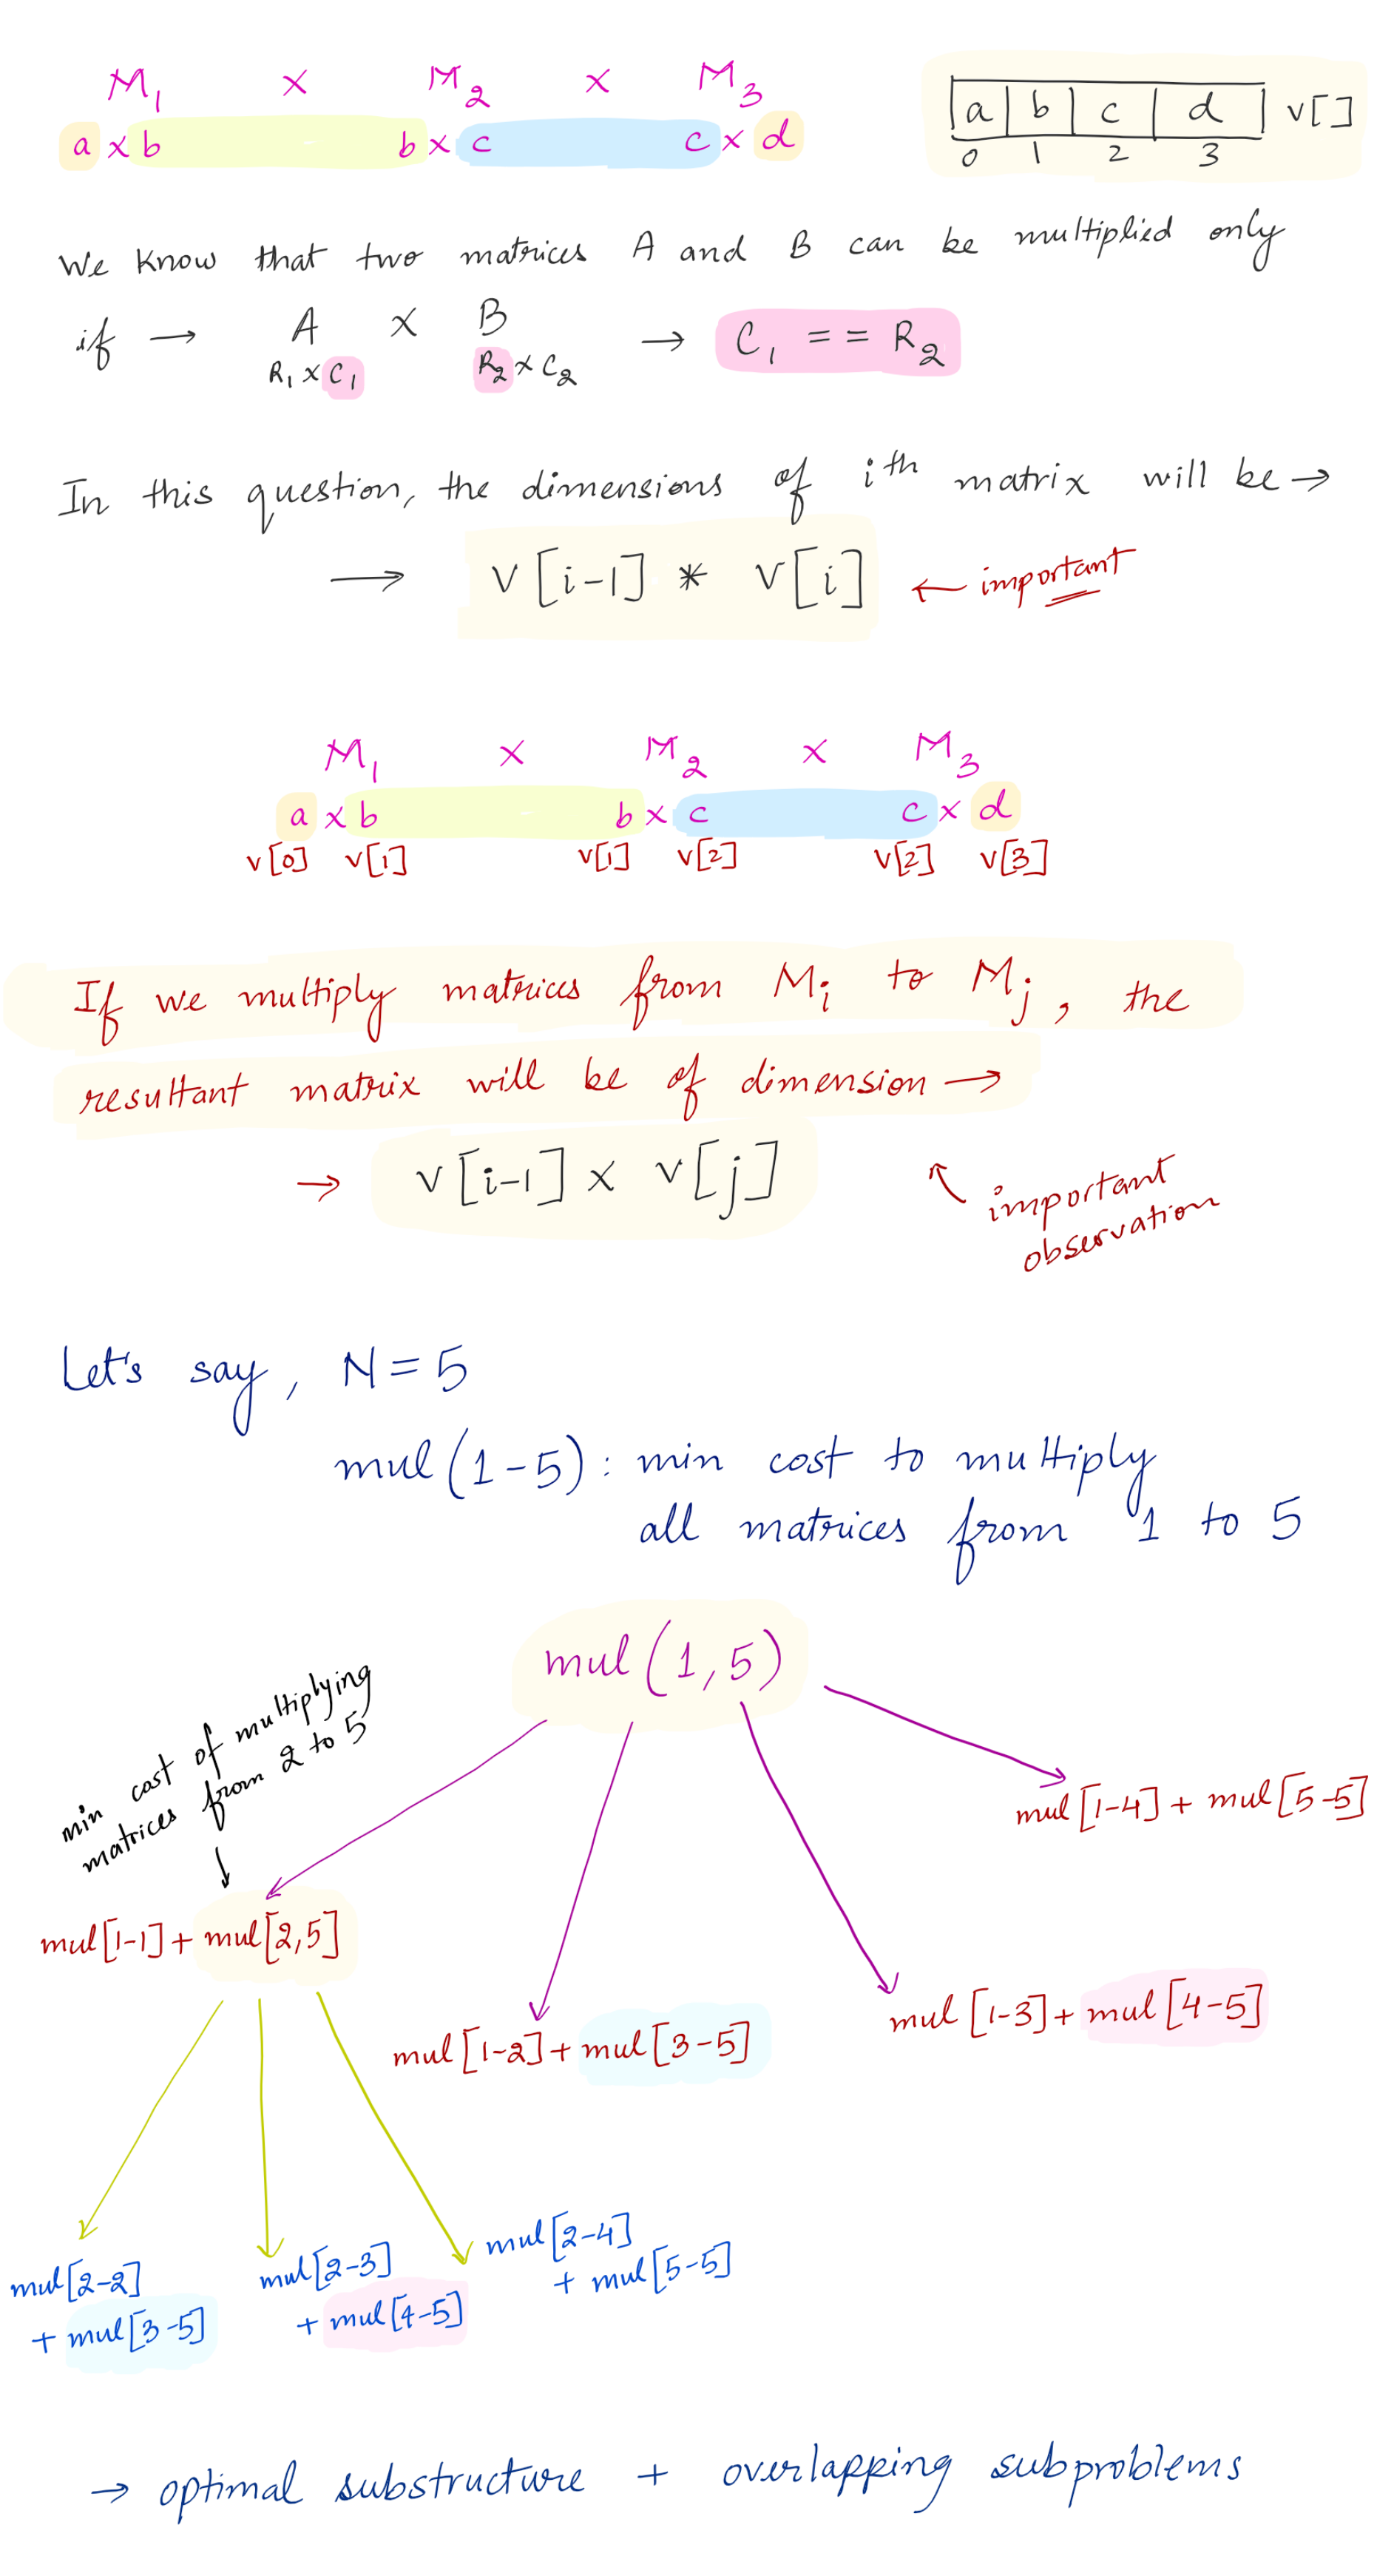 M1 x M2 x M3
a x b b x c c x d
a b c d v[]
0 1 2 3
We know that two matrices A and B can be multiplied only
if → A X B → C1 == R2
R1 x C1 R2 x C2
In this question, the dimensions of ith matrix will be →
→ v[i-1] * v[i] ← important
M1 x M2 x M3
a x b b x c c x d
v[0] v[1] v[1] v[2] v[2] v[3]
If we multiply matrices from Mi to Mj, the
resultant matrix will be of dimension →
→ v[i-1] x v[j]
important
observation
Let's say, N = 5
mul(1-5): min cost to multiply
all matrices from 1 to 5
mul(1,5)
min cost of multiplying
matrices from 2 to 5
mul[1-4] + mul[5-5]
mul[1-1] + mul[2,5]
mul[1-2] + mul[3-5]
mul[1-3] + mul[4-5]
mul[2-2]
+ mul[3-5]
mul[2-3]
+ mul[4-5]
mul[2-4]
+ mul[5-5]
→ optimal substructure + overlapping subproblems